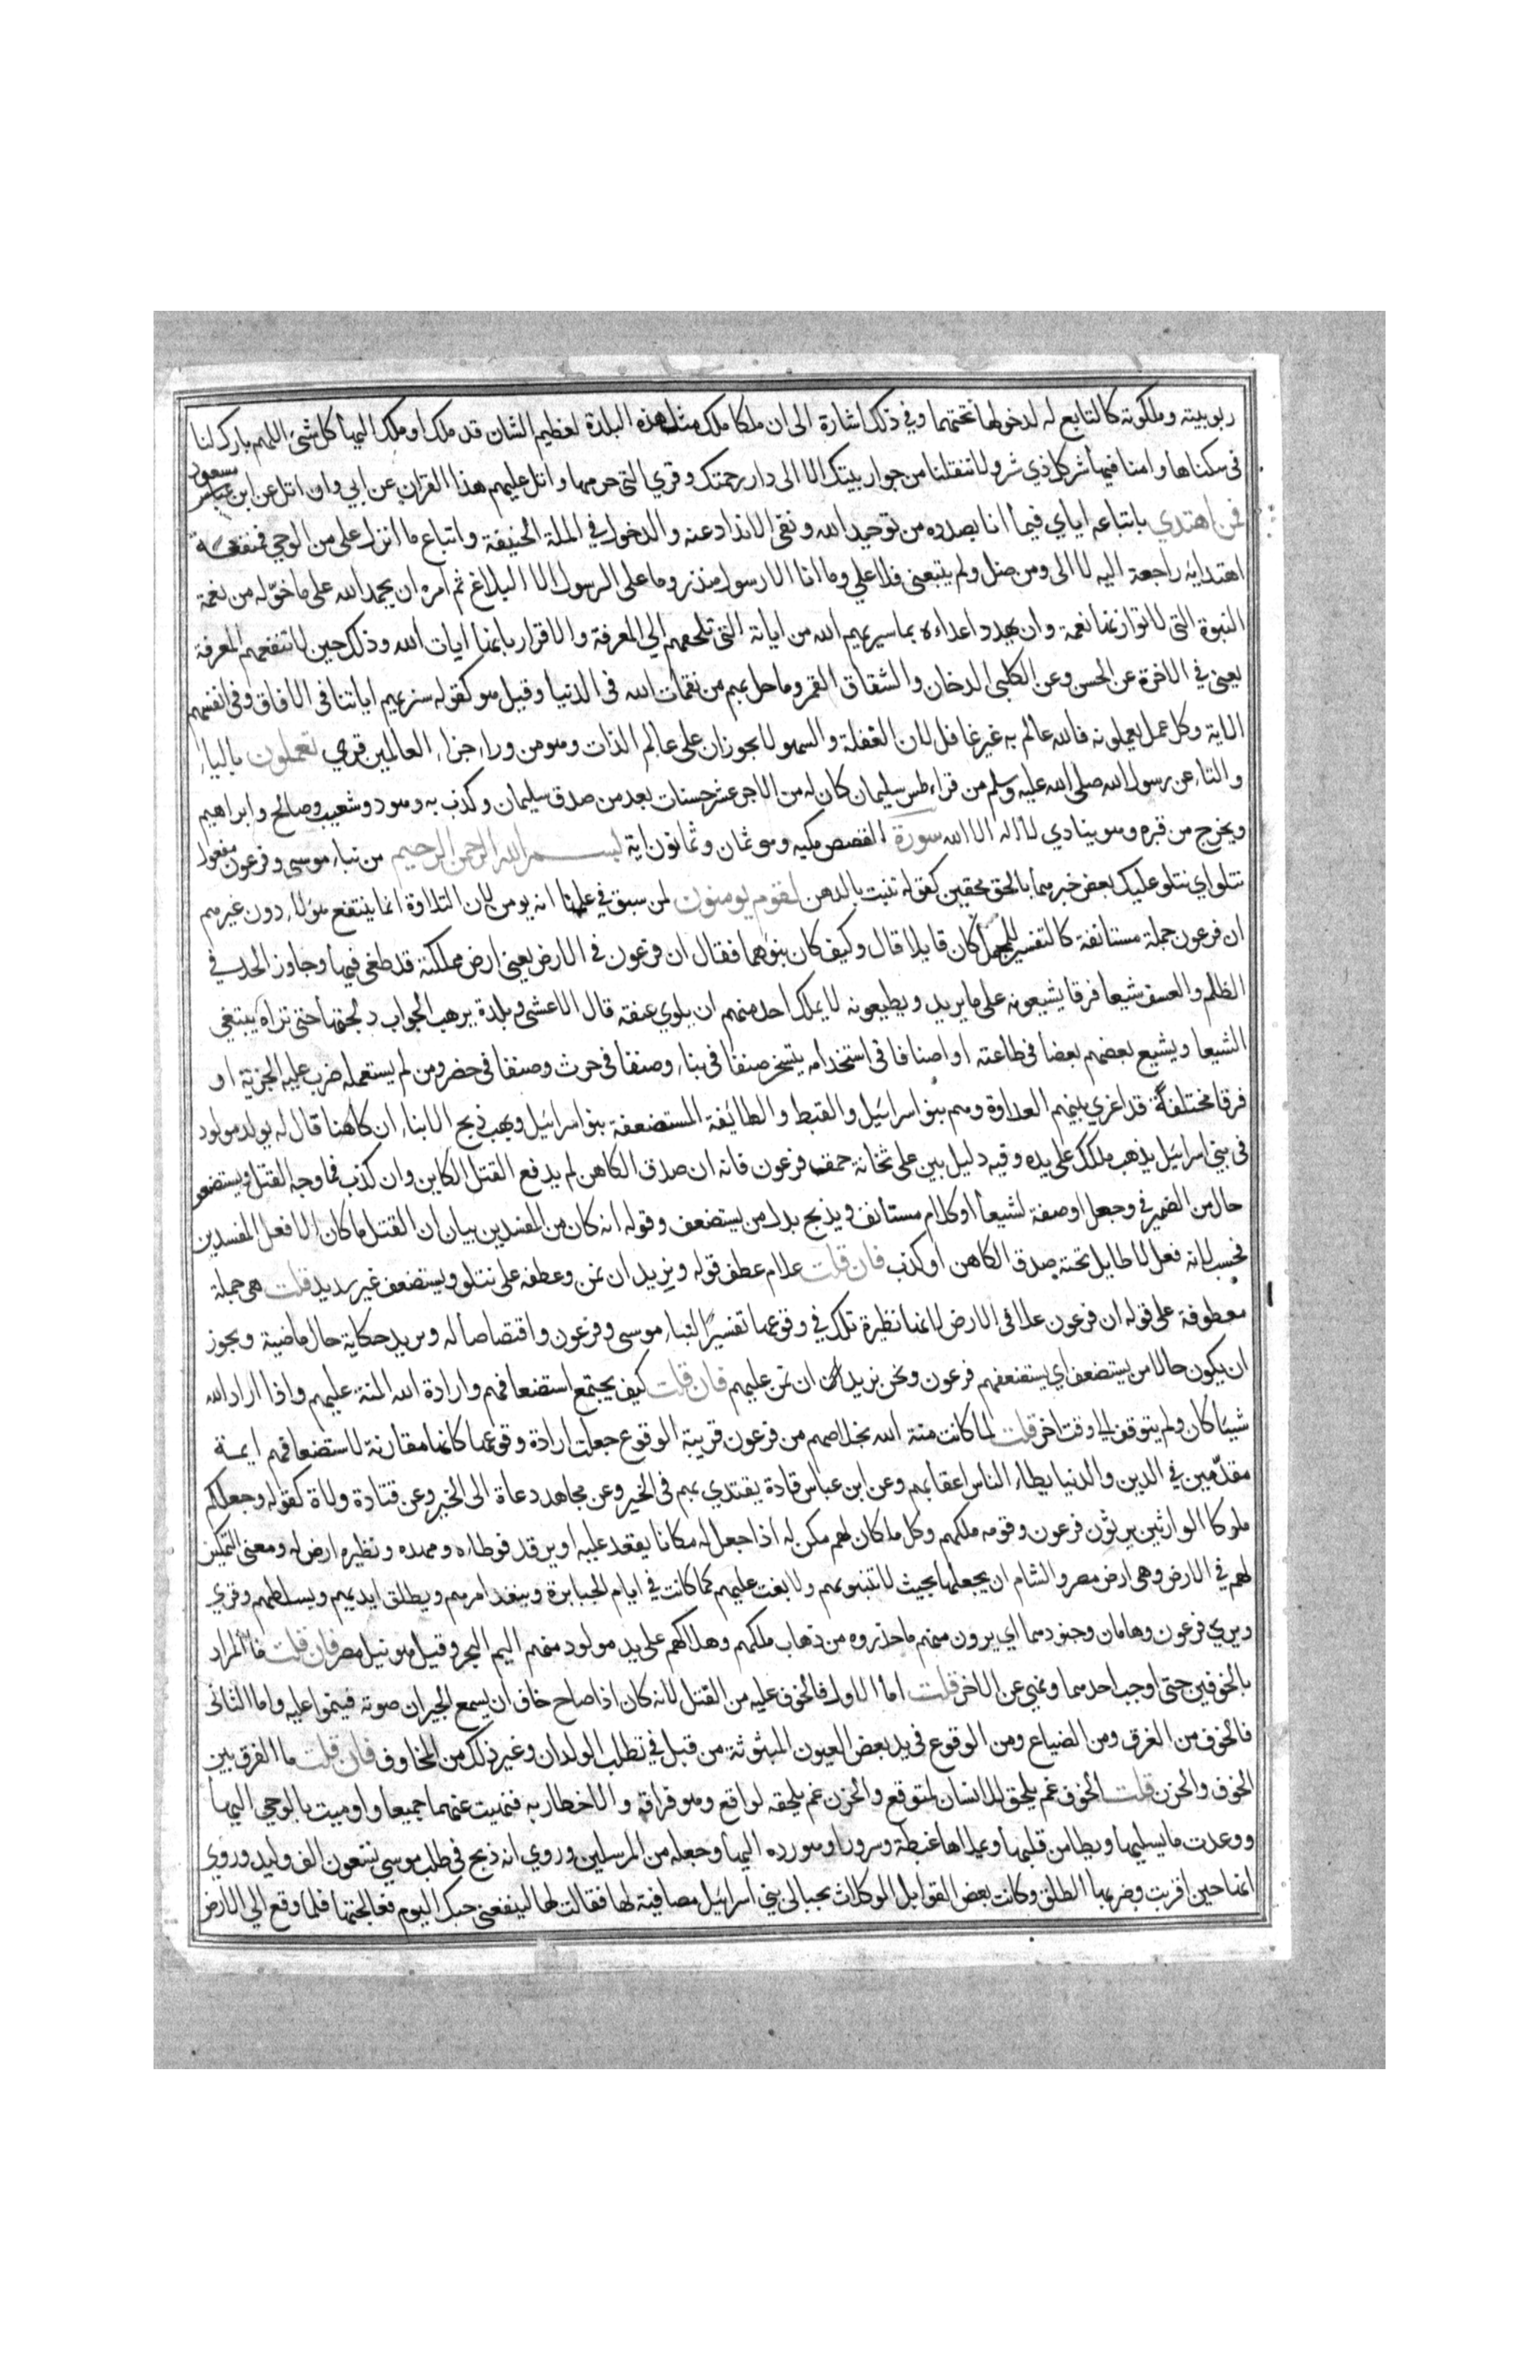 ربوبيته وملكوته كالتابع له لدخولها تحتهما وفي ذلك اشارة الى ان ملكا ملك مثل هذه البلدة لعظيم الشان قد ملكها وملك اليها كل شئ اللهم بارك لنا
في سكناها وامنا فيها شر كل ذي شر ولا تنقلنا من جوار بيتك الا الى دار رحمتك وقري التي حرمها واتل عليهم هذا القران عن ابي وان اتل عن ابن مسعود
فمن اهتدي باتباعه اياي فيما انا بصدده من توحيد الله ونفي الانداد عنه والدخول في الملة الحنيفة واتباع ما انزل علي من الوحي فمنفعة
اهتدائه راجعة اليه لا الى ومن ضل ولم يتبعني فلا علي وما انا الا رسول منذر وما على الرسول الا البلاغ ثم امره ان يحمد الله على ما خوّله من نعمة
النبوة التي لا توازنها نعمة وان يهدد اعداءه بما سيريهم الله من اياته التي تلجئهم الي المعرفة والاقرار بانها ايات الله وذلك حين لا تنفعهم المعرفة
يعني في الاخرة عن الحسن وعن الكلبي الدخان وانشقاق القمر وما حل بهم من نقمات الله في الدنيا وقيل هو كقوله سنريهم اياتنا في الافاق وفي انفسهم
الاية وكل عمل يعملونه فالله عالم به غير غافل لان الغفلة والسهو لا يجوزان على عالم الذات وهو من وراء جزاء العالمين قري تعملون بالياء
والتاء عن رسول الله صلى الله عليه وسلم من قراء طس سليمان كان له من الاجر عشر حسنات بعدد من صدق سليمان وكذب به وهود وشعيب وصالح وابراهيم
ويخرج من قبره وهو ينادي لا اله الا الله سورة القصص مكيه وهو ثمان وثمانون اية بسم الله الرحمن الرحيم من نباء موسى وفرعون مفعول
نتلو اي نتلو عليك بعض خبرهما بالحق محقين كقوله تنبت بالدهن لقوم يومنون لمن سبق في علمنا انه يومن لان التلاوة انما ينتفع هولاء دون غيرهم
ان فرعون جملة مستانفة كالتفسير للمجمل كان قايلا قال وكيف كان نبؤهما فقال ان فرعون في الارض يعني ارض مملكته قد طغى فيها وجاوز الحد في
الظلم والعسف شيعا فرقا يشيعونه على ما يريد ويطيعونه لا يملك احد منهم ان يلوي عنقه قال الاعشى وبلدة يرهب الجواب دلجتها حتى تراه يبتغي
الشيعا ويشيع بعضهم بعضا في طاعته او اصنافا في استخدامه يتسخر صنفا في بناء وصنفا في حرث وصنفا في حفر ومن لم يستعمله ضرب عليه الجزية او
فرقا مختلفة قد اغري بينهم العداوة وهم بنو اسرائيل والقبط والطائفة المستضعفة بنو اسرائيل وسبب ذبح الابناء ان كاهنا قال له يولد مولود
في بني اسرائيل يذهب ملكك على يده وفيه دليل بين على ثخانة حمق فرعون فانه ان صدق الكاهن لم يدفع القتل الكاين وان كذب فما وجه القتل ويستضعف
حال من الضمير في وجعل او صفة لشيعا او كلام مستانف ويذبح بدل من يستضعف وقوله انه كان من المفسدين بيان ان القتل ما كان الا فعل المفسدين
فحسب لانه فعل لا طايل تحته صدق الكاهن او كذب فان قلت علام عطف قوله ونريد ان نمن وعطفه على نتلو ويستضعف غير سديد قلت هي جملة
معطوفة على قوله ان فرعون علا في الارض لانها نظيرة تلك في وقوعها تفسيرًا لنباء موسى وفرعون واقتصاصا له ونريد حكاية حال ماضية ويجوز
ان يكون حالا من يستضعف اي يستضعفهم فرعون ونحن نريد ان نمن عليهم فان قلت كيف يجتمع استضعافهم وارادة الله المنة عليهم واذا اراد الله
شيئا كان ولم يتوقف الي وقت اخر قلت لما كانت منة الله بخلاصهم من فرعون قريبة الوقوع جعلت ارادة وقوعها كانها مقارنة لاستضعافهم ايمة
مقدّمين في الدين والدنيا يطاء الناس اعقابهم وعن ابن عباس قادة يقتدي بهم في الخير وعن مجاهد دعاة الى الخير وعن قتادة ولاة كقوله وجعلكم
ملوكا الوارثين يرثون فرعون وقومه ملكهم وكل ما كان لهم مكن له اذا جعل له مكانا يقعد عليه او يرقد فوطاءه ومهده ونظيره ارض له ومعنى التمكين
لهم في الارض وهي ارض مصر والشام ان يجعلها بحيث لا تنبو بهم ولا بغت عليهم كما كانت في ايام الجبابرة وينفذ امرهم ويطلق ايديهم ويسلطهم وقري
ويري فرعون وهامان وجنودهما اي يرون منهم ما حذروه من ذهاب ملكهم وهلاكهم على يد مولود منهم اليم البحر وقيل هو نيل مصر فان قلت ما المراد
بالخوفين حتى اوجب احدهما ونهي عن الاخر قلت اما الاول فالخوف عليه من القتل لانه كان اذا صاح خاف ان يسمع الجيران صوته فينموا عليه واما الثاني
فالخوف من الغرق ومن الضياع ومن الوقوع في يد بعض العيون المبثوثة من قبل في تطلب الولدان وغير ذلك من المخاوف فان قلت ما الفرق بين
الخوف والحزن قلت الخوف غم يلحق الانسان لمتوقع والحزن غم يلحقه لواقع وهو فراقه والاخطار به فنهيت عنهما جميعا واومنت بالوحي اليها
ووعدت ما يسليها ويطامن قلبها ويملاها غبطة وسرورا وهو رده اليها وجعله من المرسلين وروي انه ذبح في طلب موسي تسعون الف وليد وروي
انها حين اقربت وضربها الطلق وكانت بعض القوابل الموكلات بحبالى بني اسرائيل مصافية لها فقالت لها لينفعني حبك اليوم فعالجتها فلما وقع الي الارض